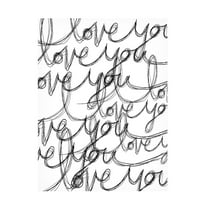 I love you
love you
love you
I love you
love you
love you
you love you
love you